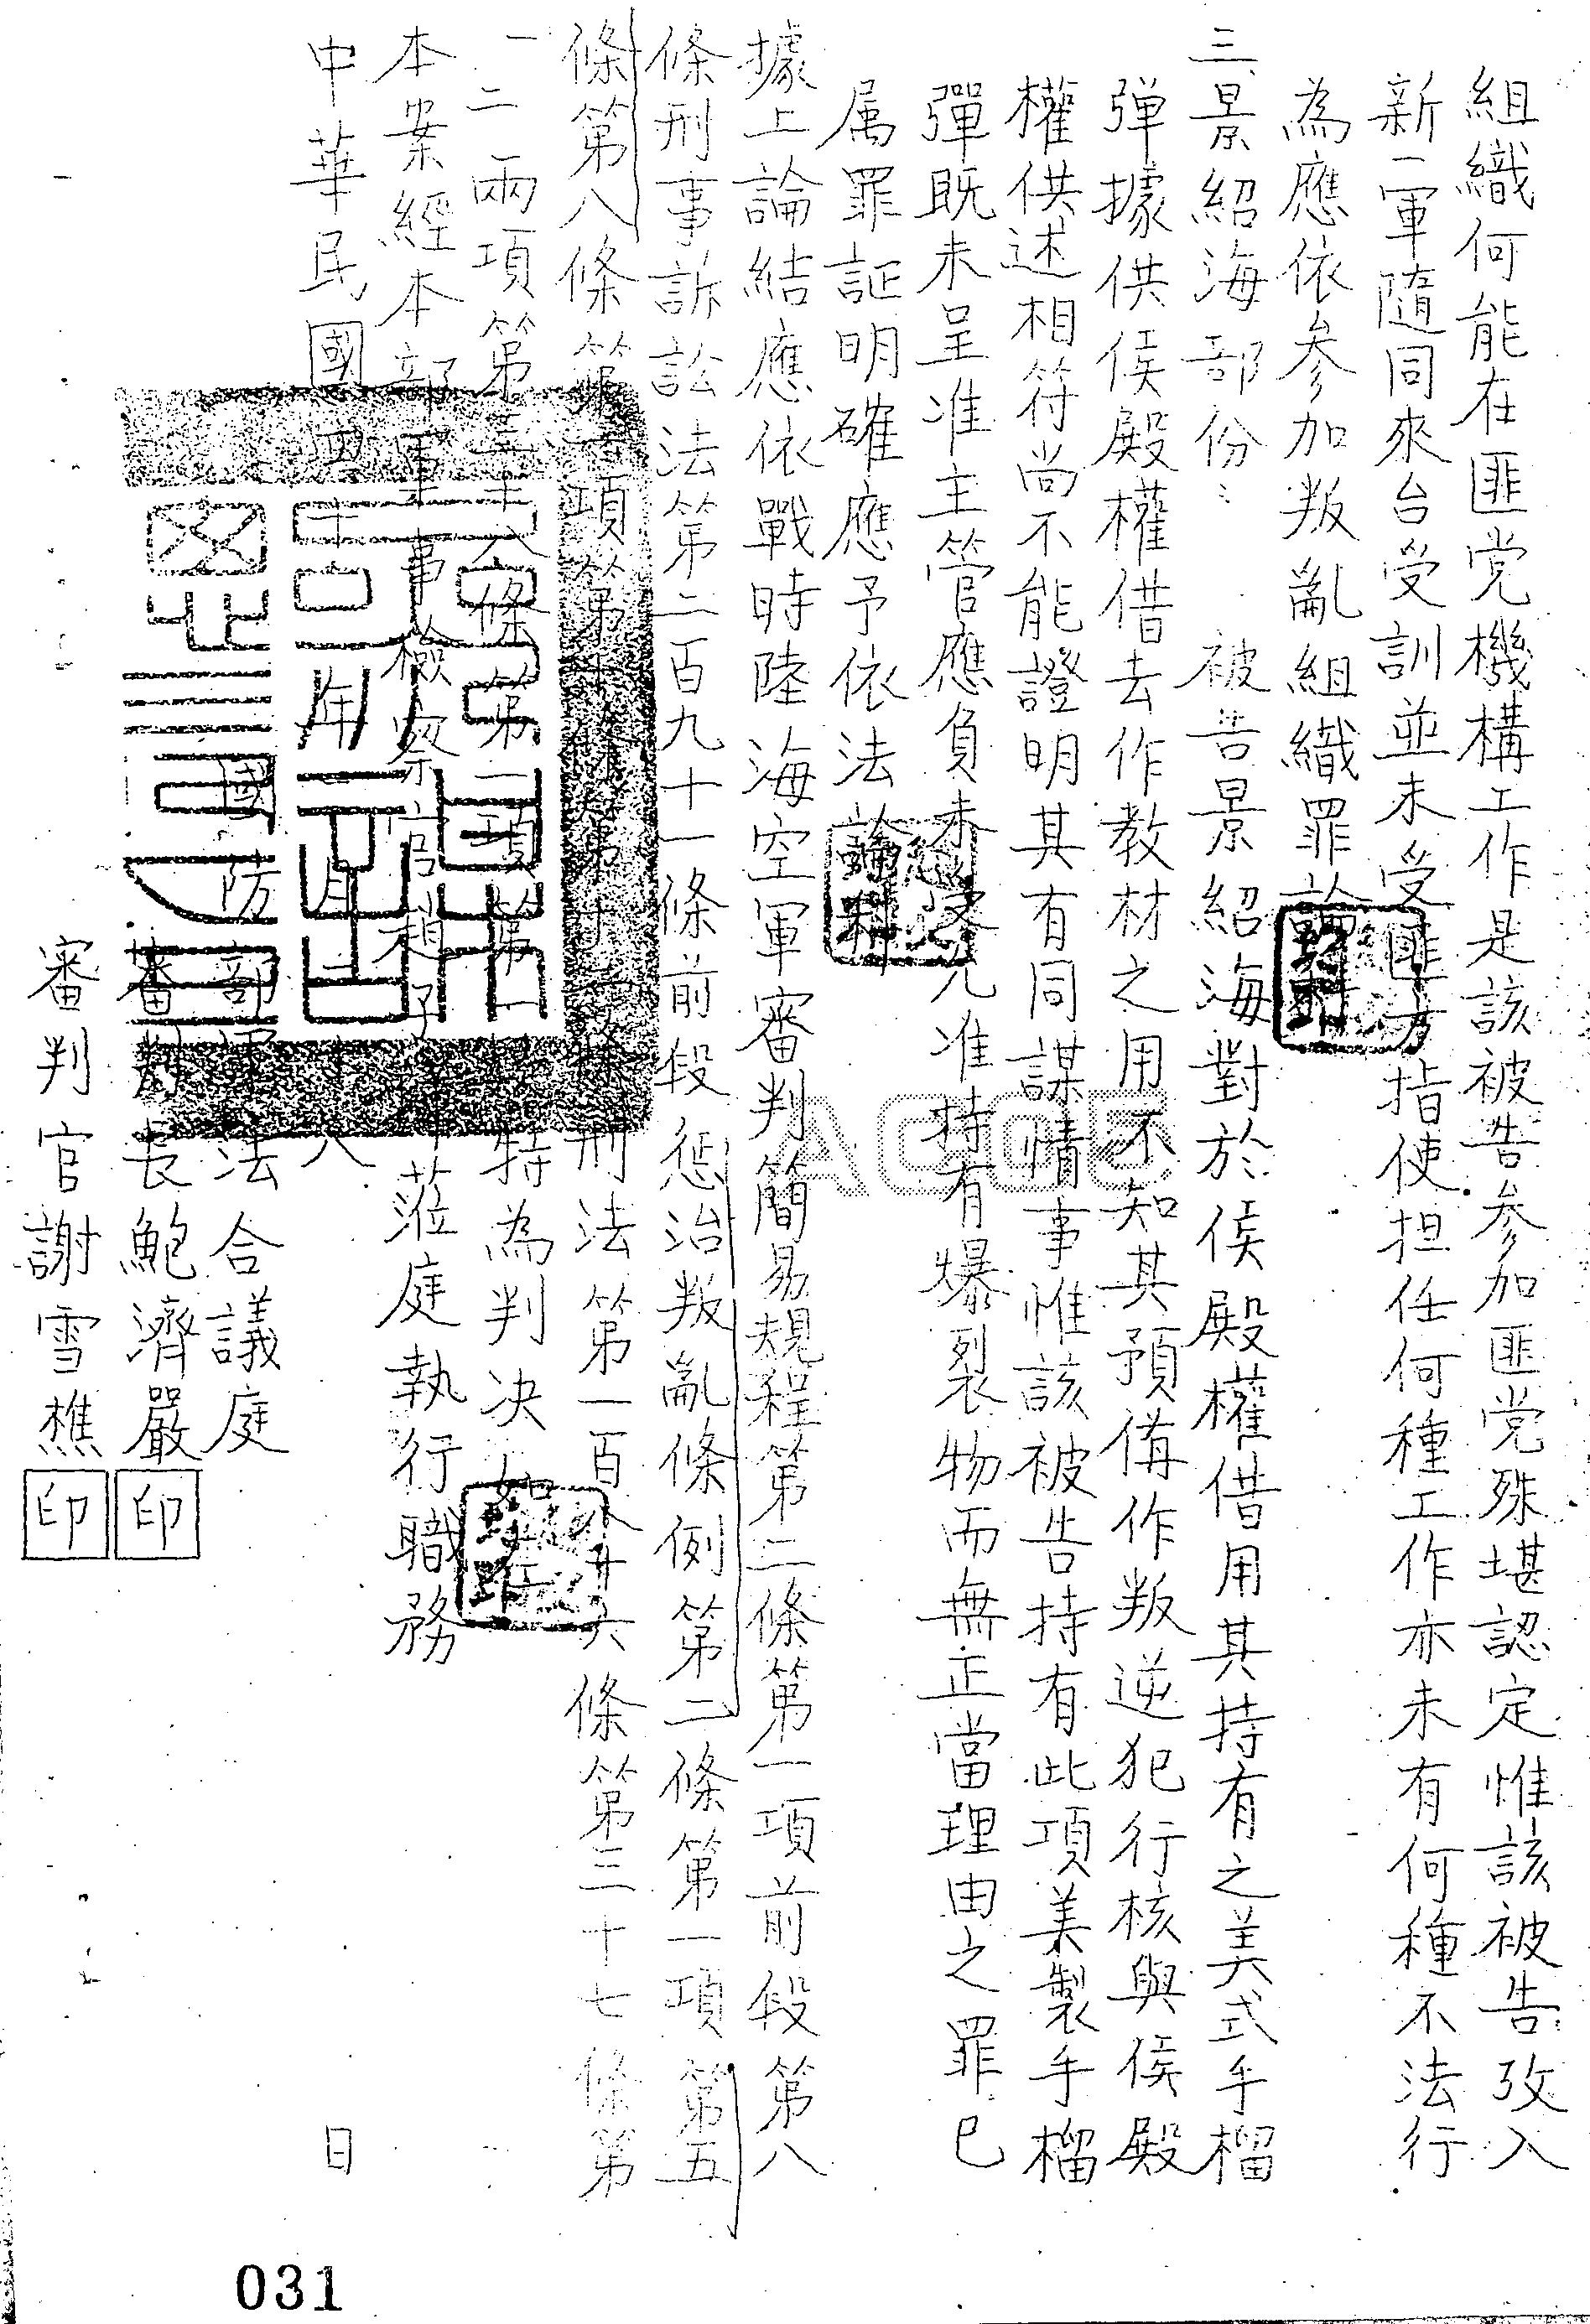 組織何能在匪党機構工作是該被告参加匪党殊堪認定惟該被告攷入
新一軍隨同來台受訓並未受匪方指使担任何種工作亦未有何種不法行
為應依参加叛亂組織罪論科
三、景紹海部份：被告景紹海對於侯殿權借用其持有之美式手榴
弹據供侯殿權借去作教材之用不知其預備作叛逆犯行核與侯殿
權供述相符尚不能證明其有同謀情事惟該被告持有此項美製手榴
彈既未呈准主管應負未受允准持有爆裂物而無正當理由之罪已
属罪証明確應予依法論科
據上論結應依戰時陸海空軍審判簡易規程第二條第一項前段第八
條刑事訴訟法第二百九十一條前段惩治叛亂條例第二條第一項第五
條第八條第項第十條第十二條刑法第一百八十六條第三十七條第
一二兩項第三十八條第一項第一特為判决如
本案經本部軍事檢察官趙蒞庭執行職務
中華民國四十年月二十八日
國防部軍法合議庭
審判長鮑濟嚴印
審判官謝雪樵印
AC05
031